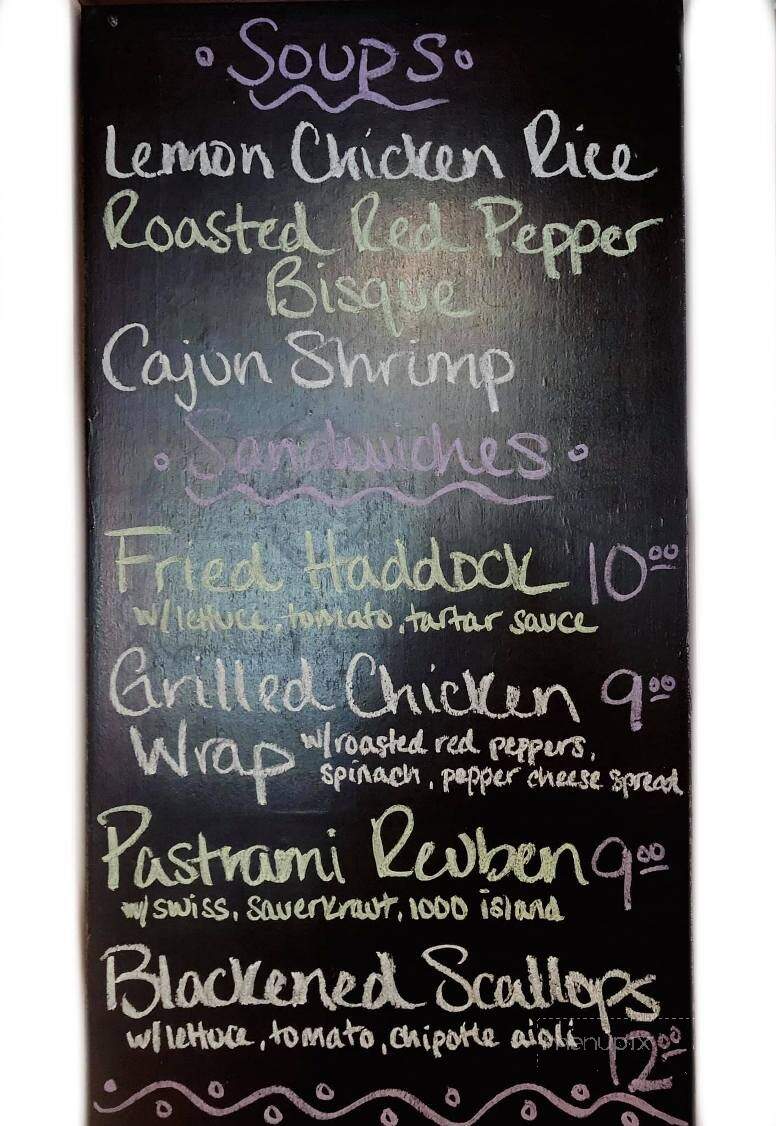 • Soups •
Lemon Chicken Rice
Roasted Red Pepper
Bisque
Cajun Shrimp
• Sandwiches •
Fried Haddock 10.00
w/lettuce, tomato, tartar sauce
Grilled Chicken 9.00
Wrap w/roasted red peppers,
spinach, pepper cheese spread
Pastrami Reuben 9.00
w/swiss, sauerkraut, 1000 island
Blackened Scallops
w/lettuce, tomato, chipotle aioli
12.00
menupix